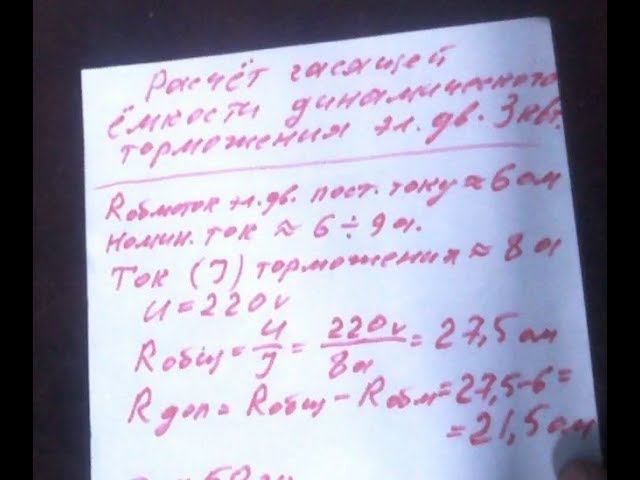 Расчёт гасящей
ёмкости динамического
торможения эл. дв. 3 квт.
Rобмоток эл. дв. пост. току ≈ 6 ом
Номин. ток ≈ 6 ÷ 9 а.
Ток (J) торможения ≈ 8 а
U = 220 v
Rобщ = U/J = 220v/8а = 27,5 ом
Rдоп = Rобщ − Rобм = 27,5 − 6 =
= 21,5 ом